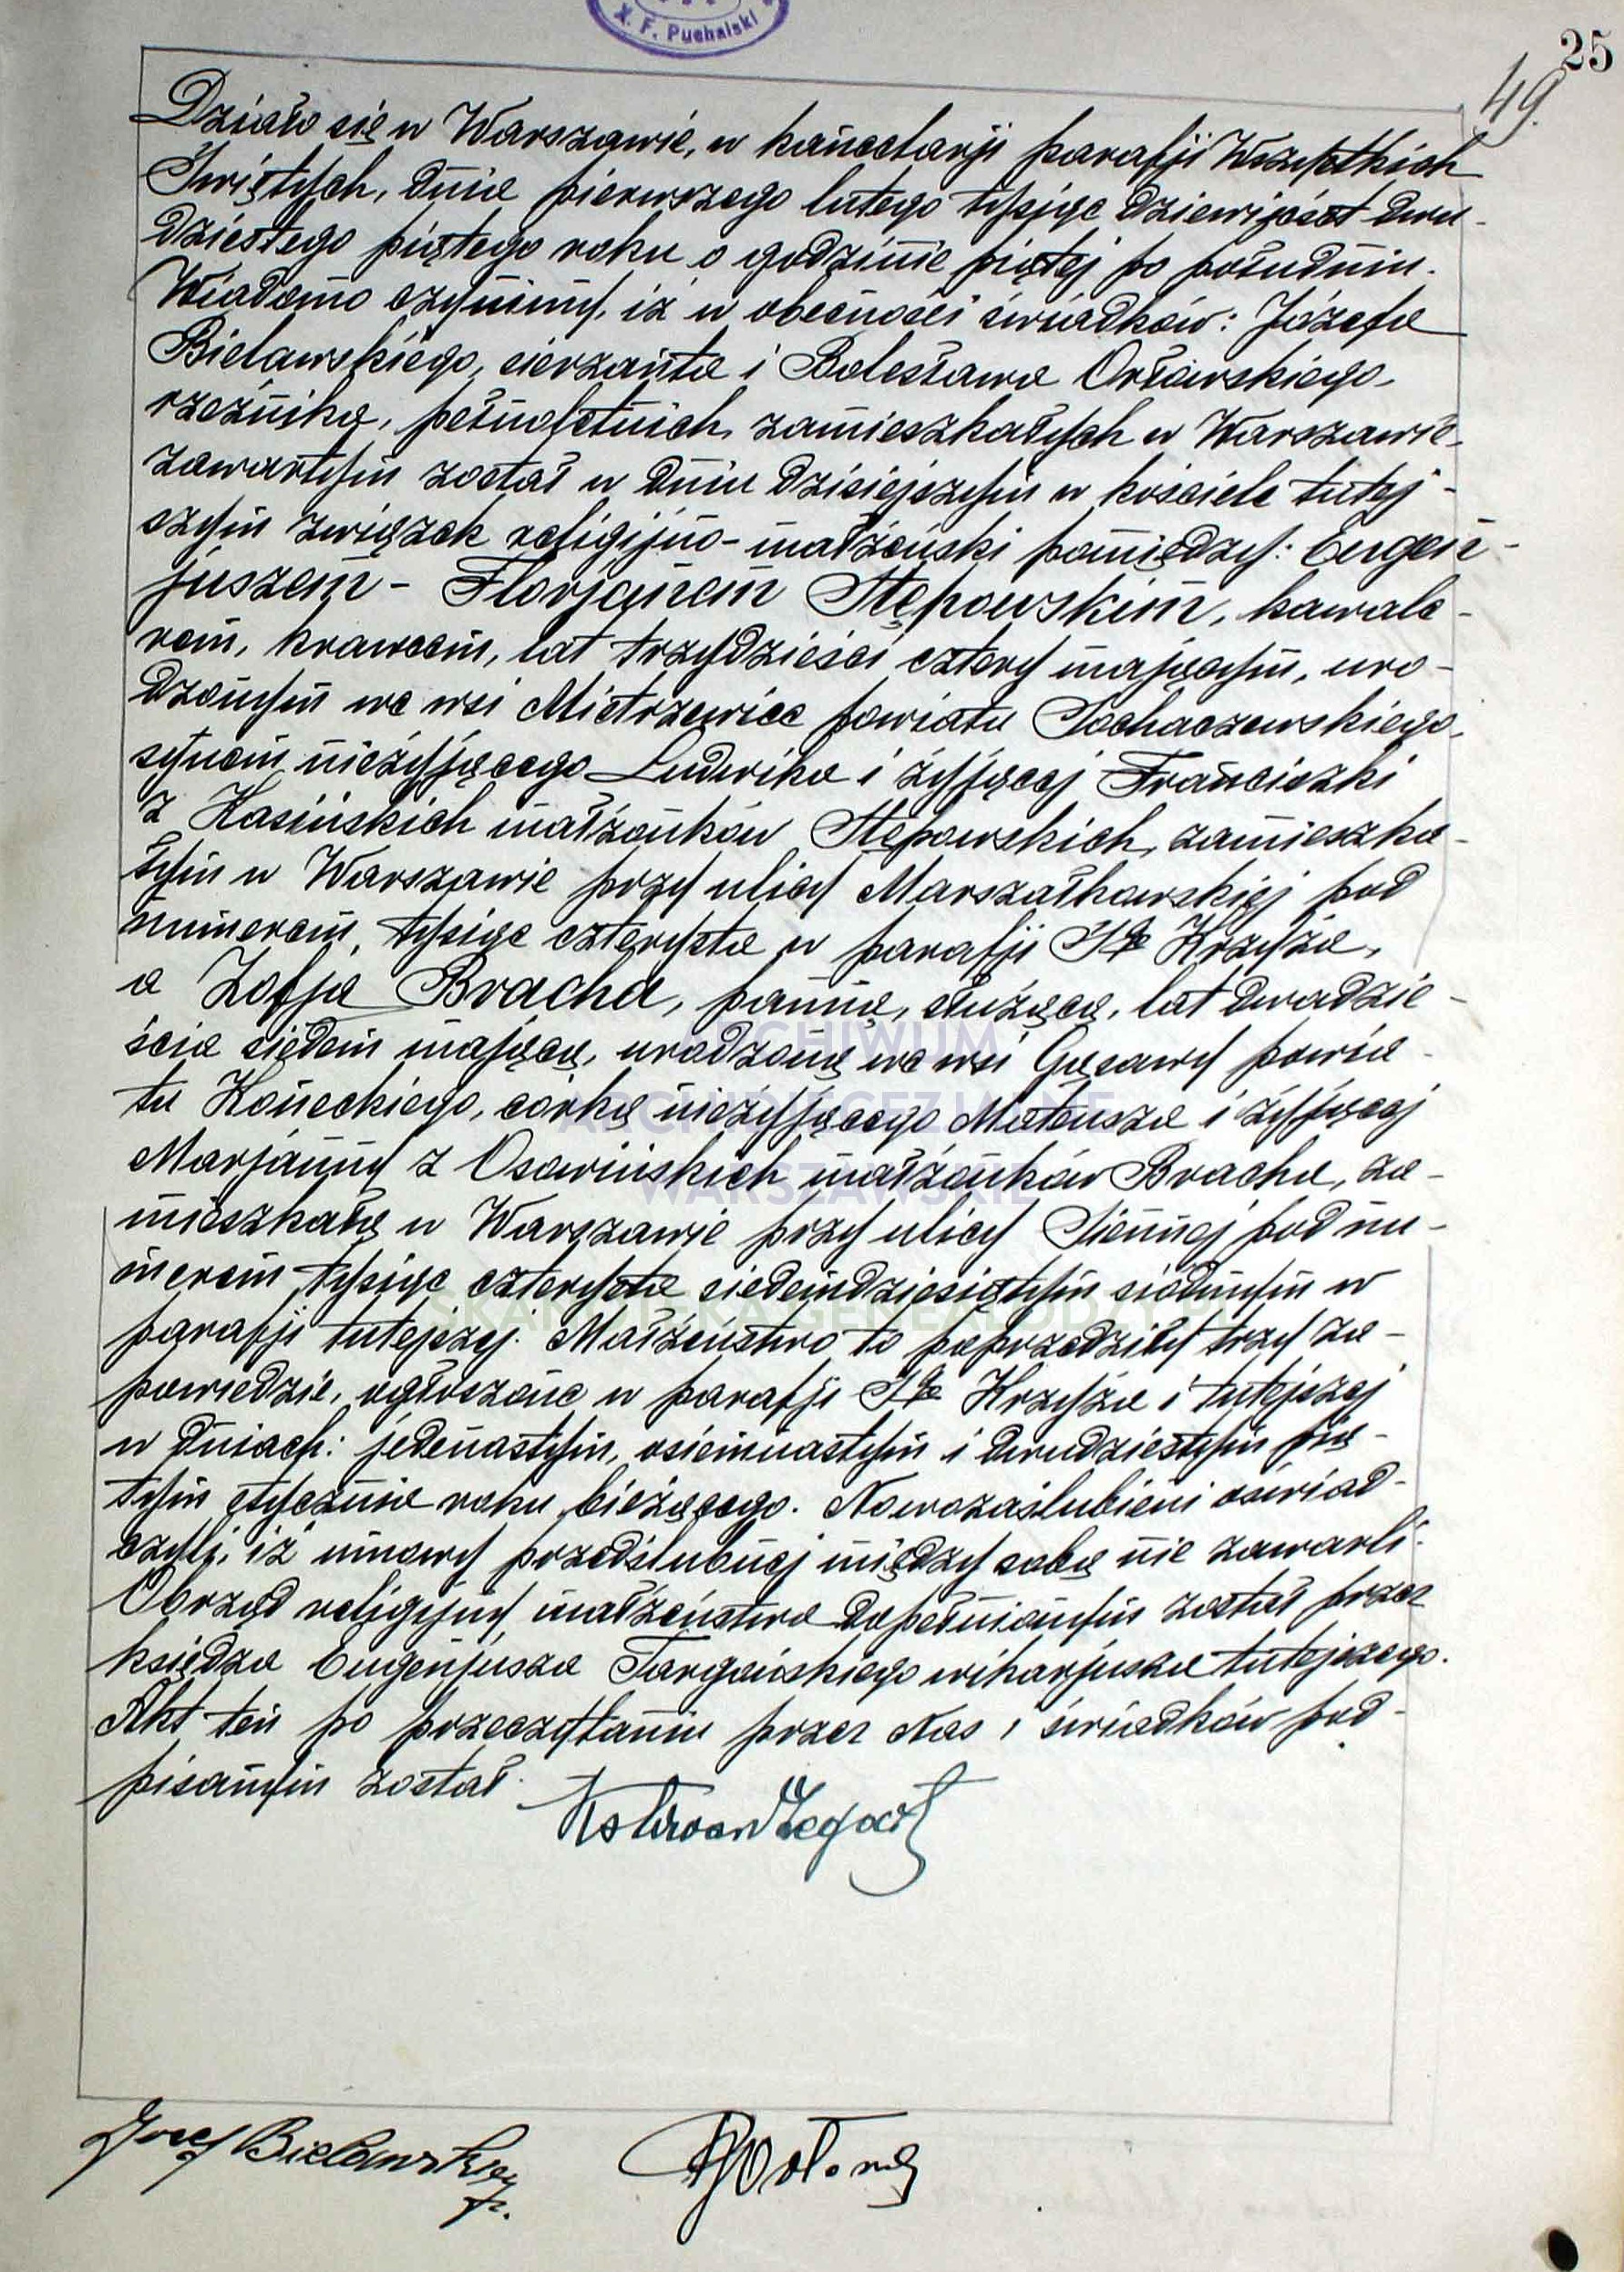 X. F. Puchalski
25
49.
Działo się w Warszawie, w kancelarji parafji Wszystkich
Świętych, dnia pierwszego lutego tysiąc dziewięćset dwu-
dziestego piątego roku o godzinie piątej po południu.
Wiadomo czynimy, iż w obecności świadków: Józefa
Bielawskiego, sierżanta i Bolesława Orłowskiego,
rzeźnika, pełnoletnich, zamieszkałych w Warszawie-
zawartym został w dniu dzisiejszym w kościele tutej-
szym związek religijno-małżeński pomiędzy: Eugen-
juszem-Florjanem Stępowskim, kawale-
rem, krawcem, lat trzydzieści cztery mającym, uro-
dzonym we wsi Mistrzewice powiatu Sochaczewskiego,
synem nieżyjącego Ludwika i żyjącej Franciszki
z Kasińskich małżonków Stępowskich, zamieszka-
łym w Warszawie przy ulicy Marszałkowskiej pod
numerem tysiąc czterysta w parafji Ś-go Krzyża,
a Zofją Bracha, panną, służącą, lat dwadzie-
ścia siedem mającą, urodzoną we wsi Gąsawy powia-
tu Koneckiego, córką nieżyjącego Mateusza i żyjącej
Marjanny z Osowińskich małżonków Bracha, za-
mieszkałą w Warszawie przy ulicy Siennej pod nu-
merem tysiąc czterysta siedemdziesiątym siódmym w
parafji tutejszej. Małżeństwo to poprzedziły trzy za-
powiedzie, ogłoszone w parafji Ś-go Krzyża i tutejszej
w dniach: jedenastym, osiemnastym i dwudziestym pią-
tym stycznia roku bieżącego. Nowozaślubieni oświad-
czyli, iż umowy przedślubnej między sobą nie zawarli.
Obrzęd religijny małżeństwa dopełnionym został przez
księdza Eugenjusza Targońskiego wikarjusza tutejszego.
Akt ten po przeczytaniu przez Nas i świadków pod-
pisanym został.
Józef Bielawski
ARCHIWUM
ARCHIDIECEZJALNE
WARSZAWSKIE